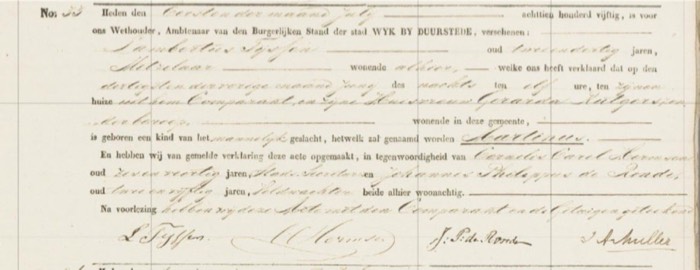 No. 33 Heden den Eersten der maand July achttien honderd vijftig, is voor
ons Wethouder, Ambtenaar van den Burgerlijken Stand der stad WYK BY DUURSTEDE, verschenen:
Lambertus Tyssen oud tweeendertig jaren,
Metselaar wonende alhier, welke ons heeft verklaard dat op den
dertigsten der vorige maand Juny des nachts ten elf ure, ten zynen
huize uit hem Comparant, en zyne Huisvrouw Gerarda Rutgers, zon-
der beroep wonende in deze gemeente,
is geboren een kind van het mannelyk geslacht, hetwelk zal genaamd worden Martinus.
En hebben wij van gemelde verklaring deze acte opgemaakt, in tegenwoordigheid van Cornelis Carel Hermsen
oud zesenveertig jaren, en Johannes Philippus de Ronde,
oud tweeenvyftig jaren, Veldwachter beide alhier woonachtig.
Na voorlezing hebben wy deze Acte met den Comparant en de Getuigen geteekend
L Tyssen. C C Hermsen J: P: de Ronde J A Muller